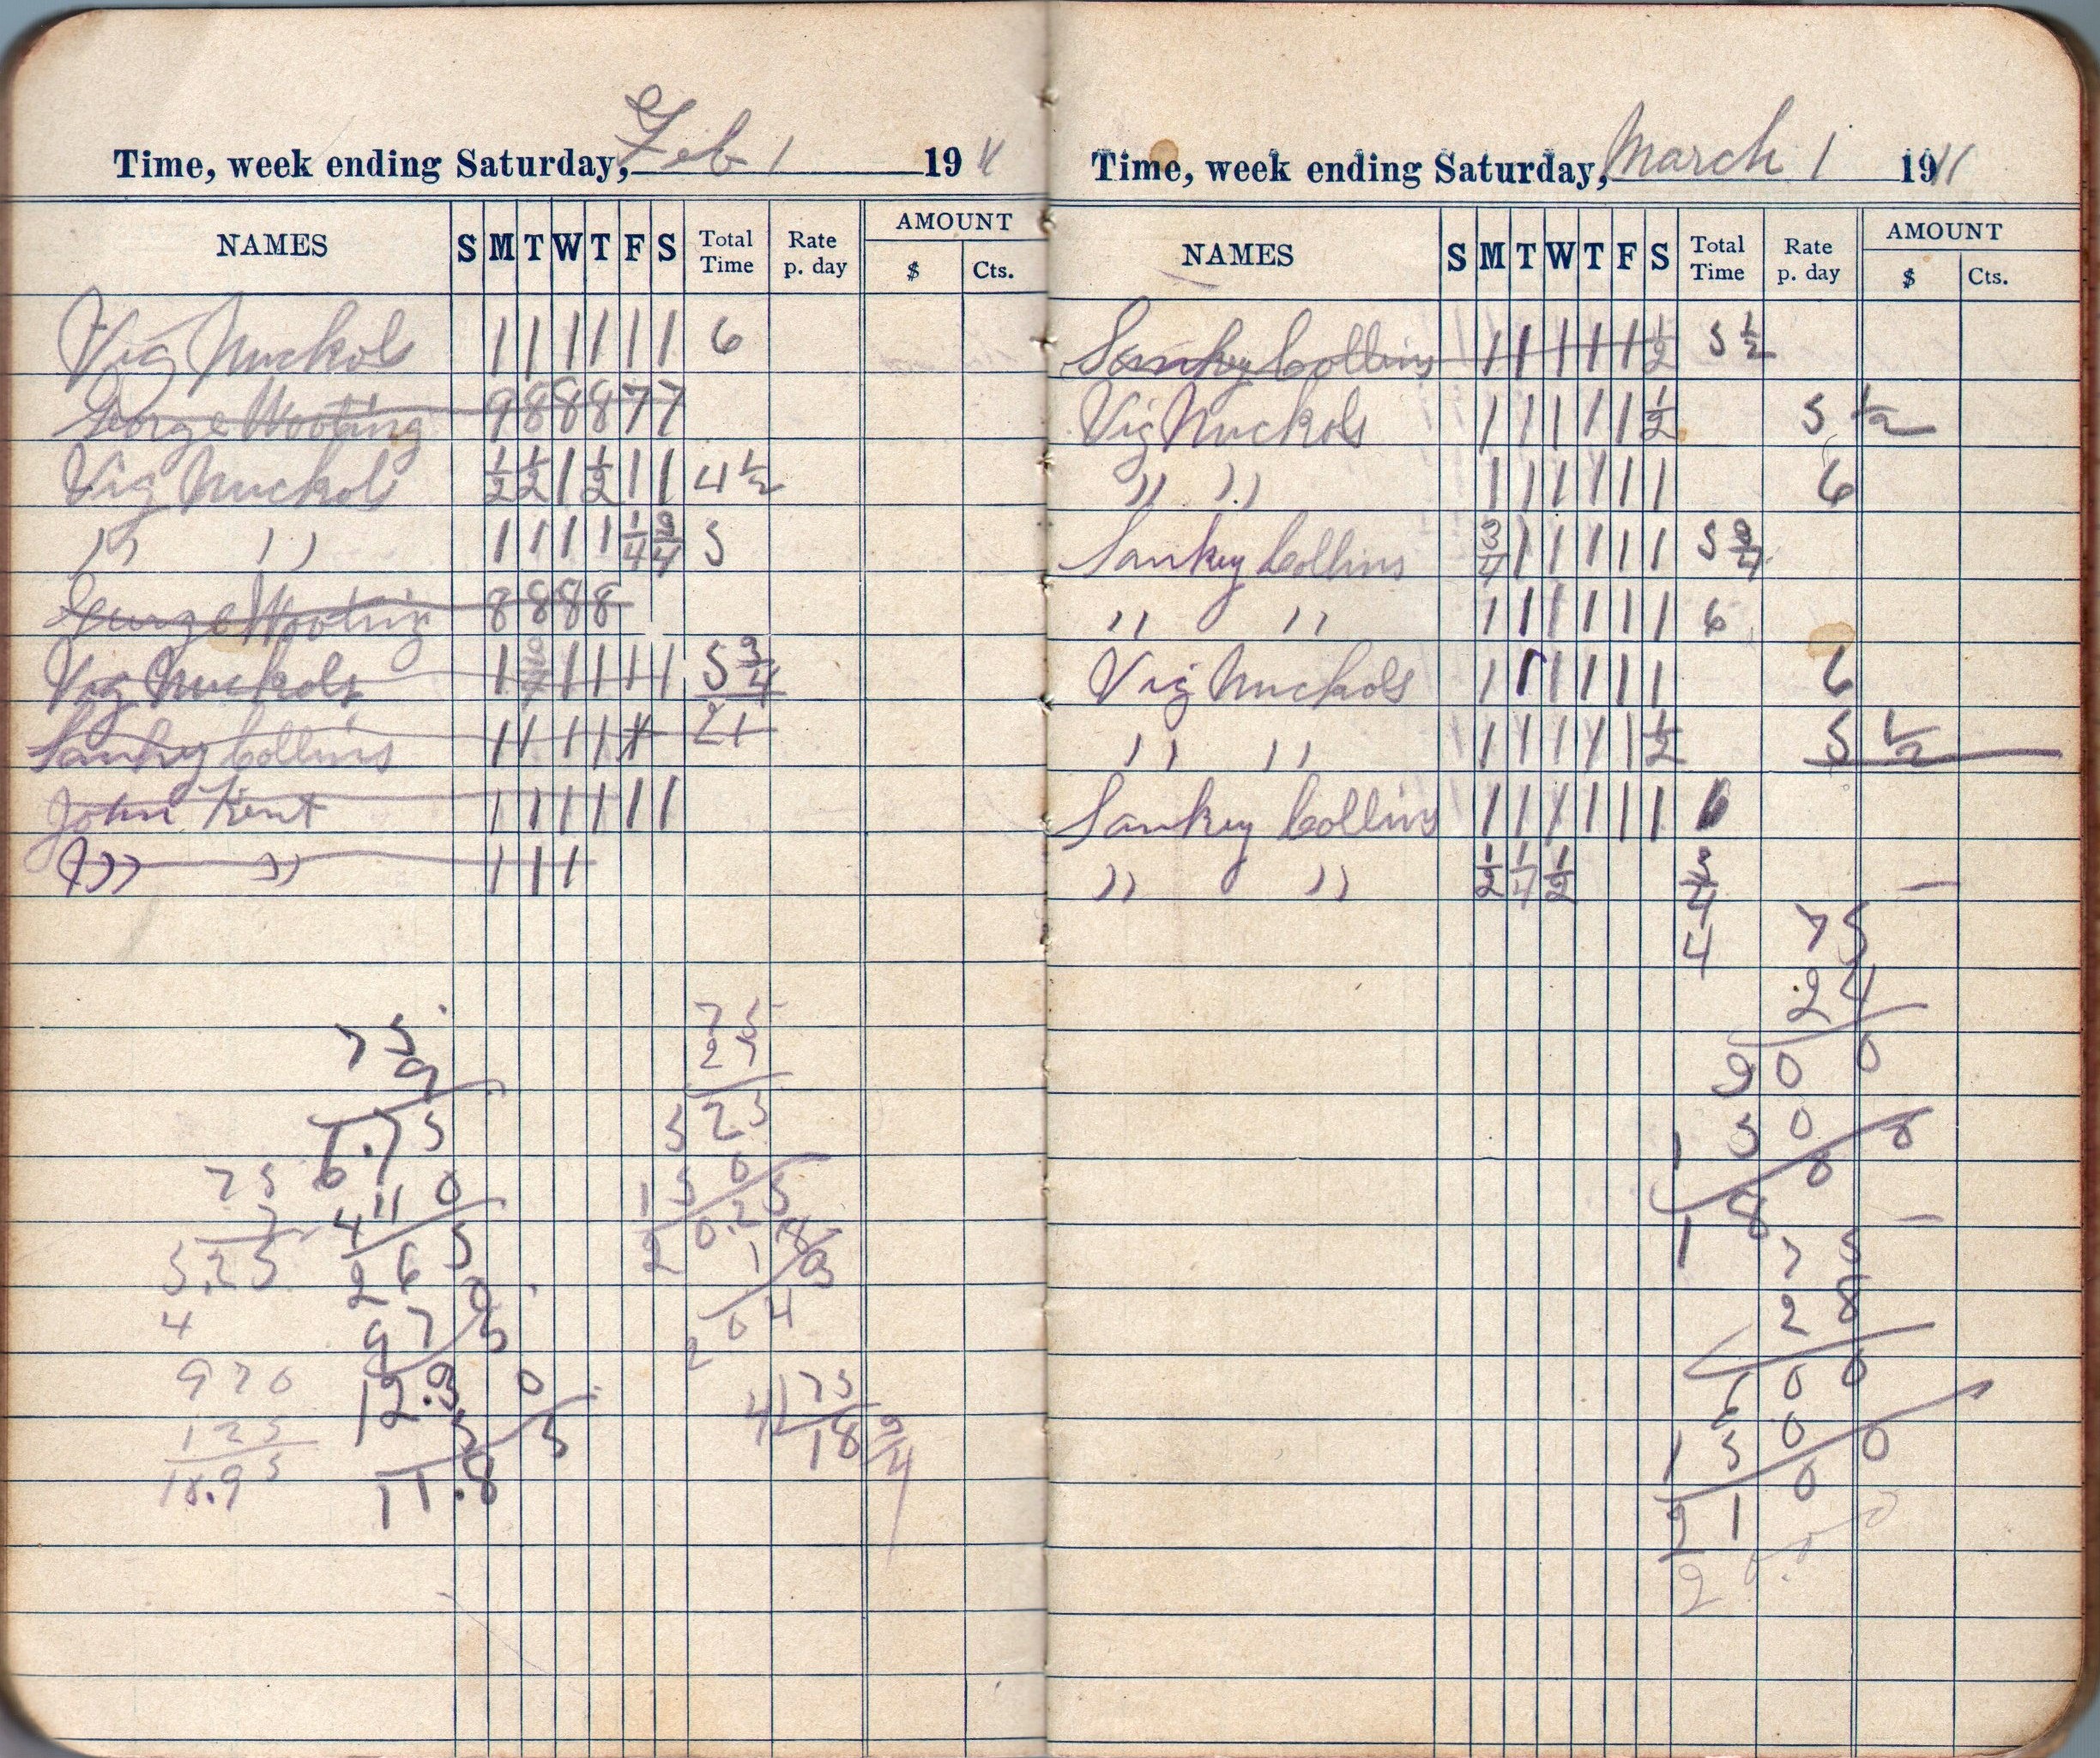 Time, week ending Saturday, Feb 1 1911
NAMES S M T W T F S Total Time Rate p. day AMOUNT $ Cts.
Vig Nuckols 1 1 1 1 1 1 6
George Wooting 9 8 8 8 7 7
Vig Nuckols 1/2 1/2 1 1/2 1 1 4 1/2
" " 1 1 1 1 1/4 3/4 5
George Wooting 8 8 8 8
Vig Nuckols 1 3/4 1 1 1 1 5 3/4
Sankey Collins 1 1 1 1 1 21
John Kent 1 1 1 1 1 1
" " 1 1 1
75
9
6.75
4 11 0
2 6 5
9 7 5
12.30
11.8
75
7
5.25
4
970
125
18.95
75
27
525
150
20.25
18
3
204
4 75
18 3/4
Time, week ending Saturday, March 1 1911
NAMES S M T W T F S Total Time Rate p. day AMOUNT $ Cts.
Sankey Collins 1 1 1 1 1 1/2 5 1/2
Vig Nuckols 1 1 1 1 1 1/2 5 1/2
" " 1 1 1 1 1 1 6
Sankey Collins 3/4 1 1 1 1 1 5 3/4
" " 1 1 1 1 1 1 6
Vig Nuckols 1 1 1 1 1 1 6
" " 1 1 1 1 1 1/2 5 1/2
Sankey Collins 1 1 1 1 1 1 6
" " 1/2 1/4 1/2 3/4
4
75
24
300
150 0
18 0 0
75
28
600
150 0
21 0 0